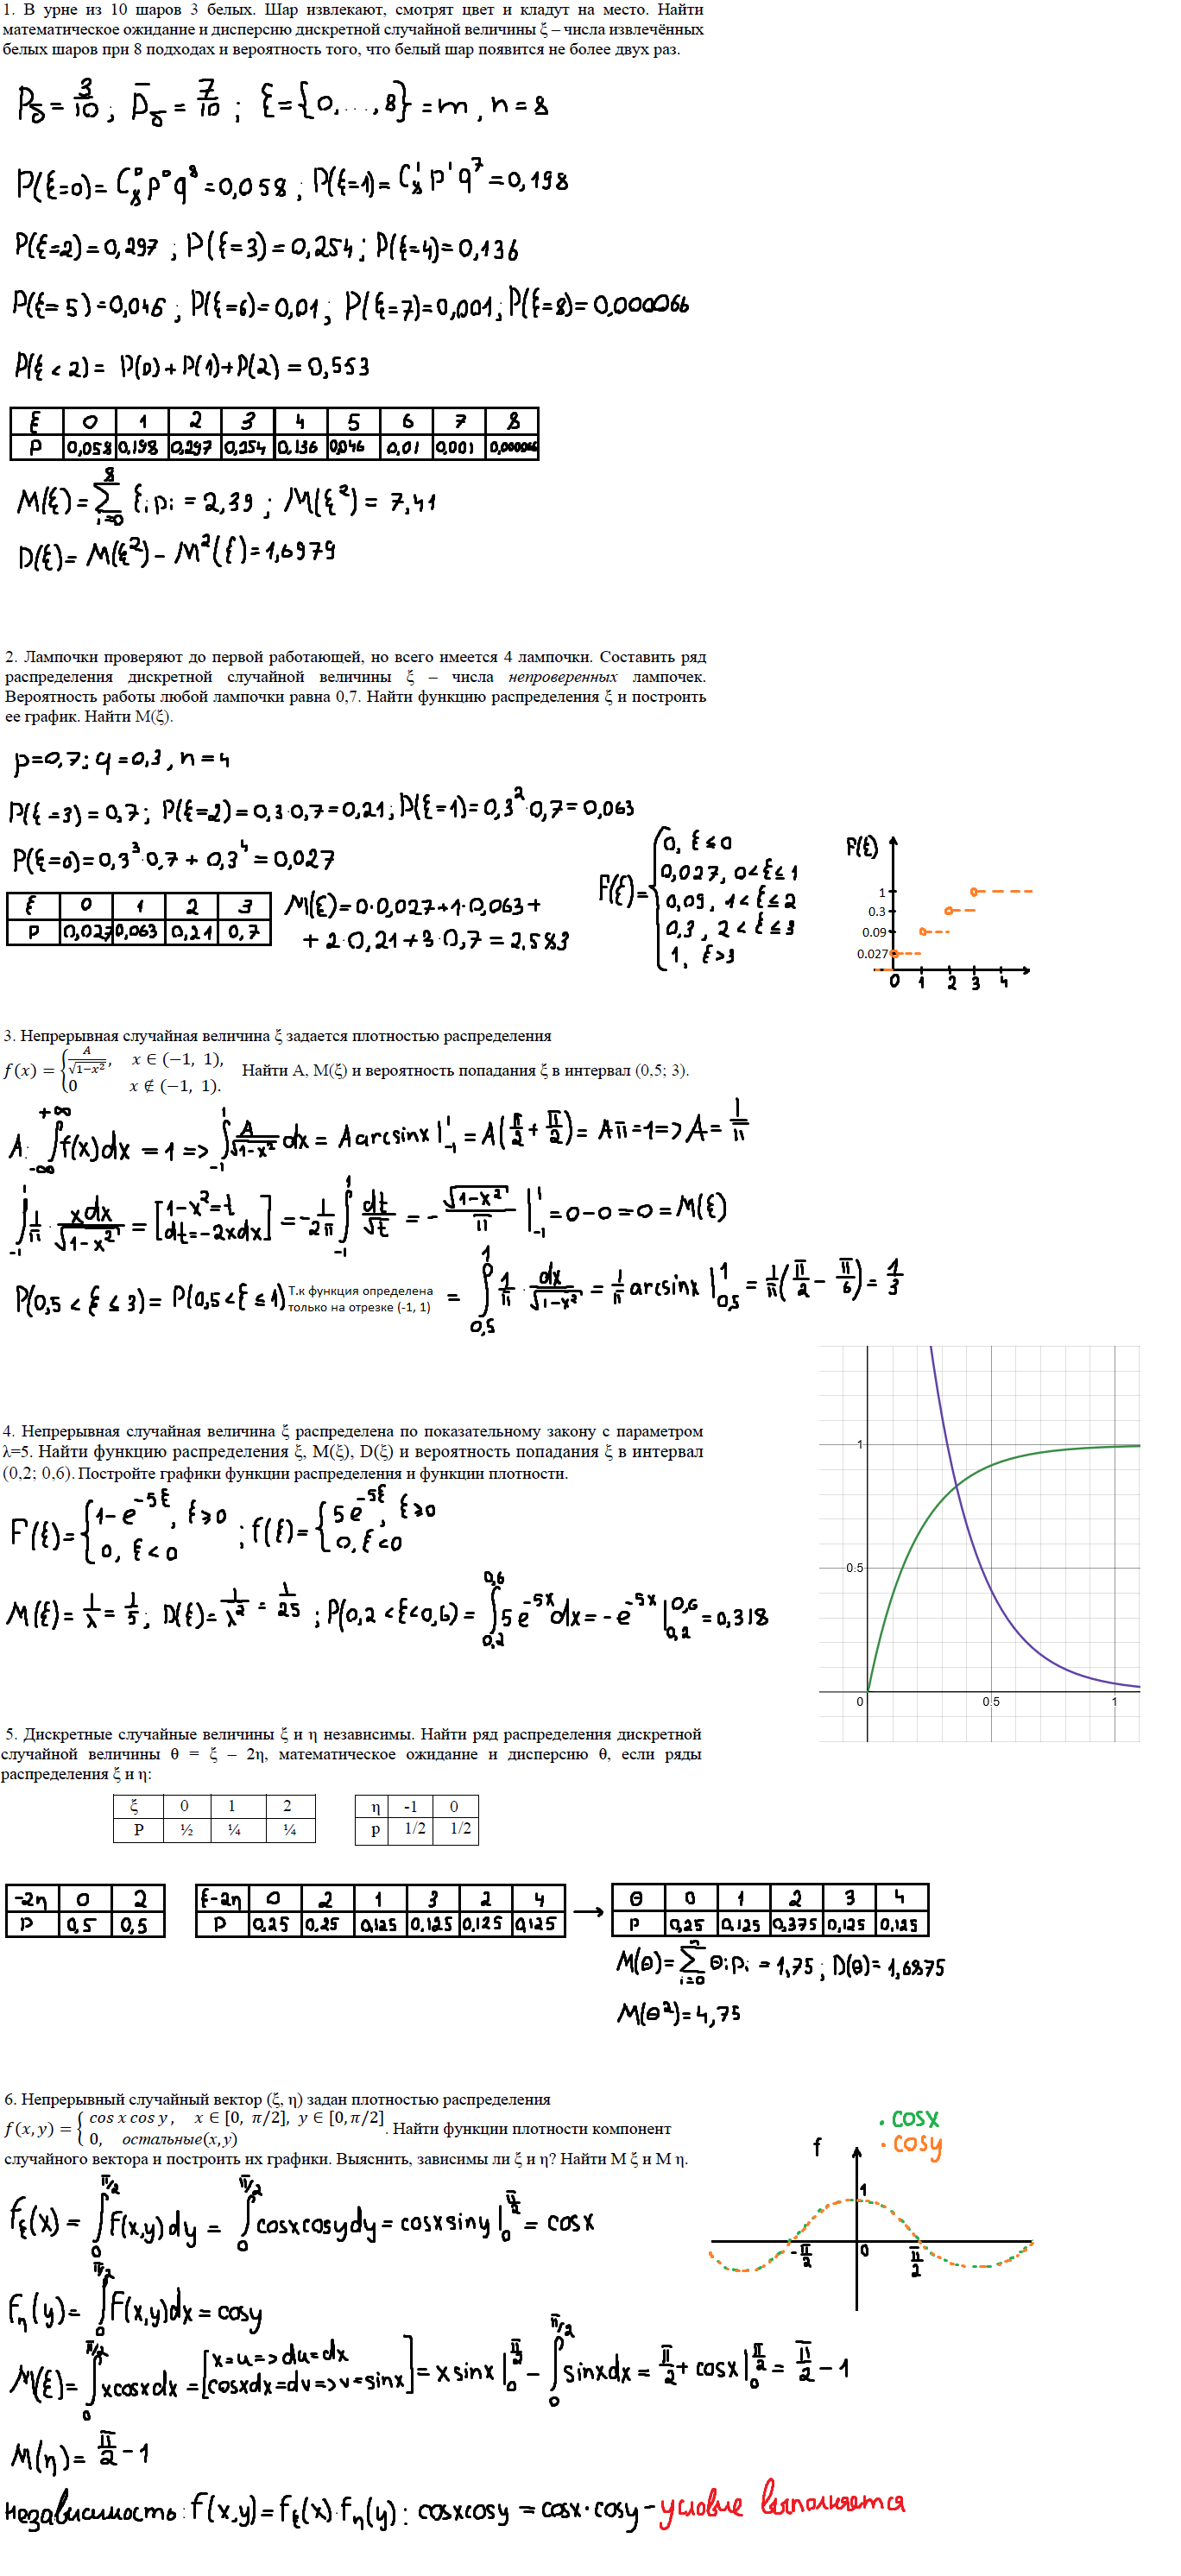 1. В урне из 10 шаров 3 белых. Шар извлекают, смотрят цвет и кладут на место. Найти
математическое ожидание и дисперсию дискретной случайной величины ξ – числа извлечённых
белых шаров при 8 подходах и вероятность того, что белый шар появится не более двух раз.
P_б = 3/10 ; P̄_б = 7/10 ; ξ = {0,...,8} = m, n = 8
P(ξ=0) = C₈⁰ p⁰ q⁸ = 0,058 ; P(ξ=1) = C₈¹ p¹ q⁷ = 0,198
P(ξ=2) = 0,297 ; P(ξ=3) = 0,254 ; P(ξ=4) = 0,136
P(ξ=5) = 0,046 ; P(ξ=6) = 0,01 ; P(ξ=7) = 0,001 ; P(ξ=8) = 0,000066
P(ξ < 2) = P(0) + P(1) + P(2) = 0,553
ξ 0 1 2 3 4 5 6 7 8
P 0,058 0,198 0,297 0,254 0,136 0,046 0,01 0,001 0,000066
M(ξ) = ∑_{i=0}^{8} ξᵢ pᵢ = 2,39 ; M(ξ²) = 7,41
D(ξ) = M(ξ²) – M²(ξ) = 1,6979
2. Лампочки проверяют до первой работающей, но всего имеется 4 лампочки. Составить ряд
распределения дискретной случайной величины ξ – числа непроверенных лампочек.
Вероятность работы любой лампочки равна 0,7. Найти функцию распределения ξ и построить
ее график. Найти М(ξ).
p=0,7; q=0,3, n=4
P(ξ=3) = 0,7; P(ξ=2) = 0,3·0,7 = 0,21; P(ξ=1) = 0,3²·0,7 = 0,063
P(ξ=0) = 0,3³·0,7 + 0,3⁴ = 0,027
ξ 0 1 2 3
P 0,027 0,063 0,21 0,7
M(ξ) = 0·0,027 + 1·0,063 +
+ 2·0,21 + 3·0,7 = 2,583
F(ξ) = {
0, ξ ≤ 0
0,027, 0 < ξ ≤ 1
0,09, 1 < ξ ≤ 2
0,3, 2 < ξ ≤ 3
1, ξ > 3
F(ξ)
1
0.3
0.09
0.027
0 1 2 3 4
3. Непрерывная случайная величина ξ задается плотностью распределения
f(x) = { A/√(1−x²), x ∈ (−1, 1),
0 x ∉ (−1, 1).
Найти А, М(ξ) и вероятность попадания ξ в интервал (0,5; 3).
A: ∫_{-∞}^{+∞} f(x)dx = 1 => ∫_{-1}^{1} A/√(1-x²) dx = A arcsinx |_{-1}^{1} = A(π/2 + π/2) = Aπ = 1 => A = 1/π
∫_{-1}^{1} 1/π · xdx/√(1-x²) = [1-x²=t dt=-2xdx] = -1/2π ∫_{-1}^{1} dt/√t = - √(1-x²)/π |_{-1}^{1} = 0-0=0 = M(ξ)
P(0,5 < ξ ≤ 3) = P(0,5 < ξ ≤ 1) Т.к функция определена
только на отрезке (-1, 1)
= ∫_{0,5}^{1} 1/π · dx/√(1-x²) = 1/π arcsinx |_{0,5}^{1} = 1/π(π/2 - π/6) = 1/3
4. Непрерывная случайная величина ξ распределена по показательному закону с параметром
λ=5. Найти функцию распределения ξ, М(ξ), D(ξ) и вероятность попадания ξ в интервал
(0,2; 0,6). Постройте графики функции распределения и функции плотности.
F(ξ) = { 1-e^{-5ξ}, ξ ≥ 0
0, ξ < 0
; f(ξ) = { 5e^{-5ξ}, ξ ≥ 0
0, ξ < 0
M(ξ) = 1/λ = 1/5 ; D(ξ) = 1/λ² = 1/25 ; P(0,2 < ξ < 0,6) = ∫_{0,2}^{0,6} 5e^{-5x} dx = -e^{-5x} |_{0,2}^{0,6} = 0,318
1
0.5
0 0.5 1
5. Дискретные случайные величины ξ и η независимы. Найти ряд распределения дискретной
случайной величины θ = ξ – 2η, математическое ожидание и дисперсию θ, если ряды
распределения ξ и η:
ξ 0 1 2
P ½ ¼ ¼
η -1 0
p 1/2 1/2
-2η 0 2
P 0,5 0,5
ξ-2η 0 2 1 3 2 4
P 0,25 0,25 0,125 0,125 0,125 0,125
→
θ 0 1 2 3 4
P 0,25 0,125 0,375 0,125 0,125
M(θ) = ∑_{i=0}^{n} θᵢ pᵢ = 1,75 ; D(θ) = 1,6875
M(θ²) = 4,75
6. Непрерывный случайный вектор (ξ, η) задан плотностью распределения
f(x,y) = { cos x cos y, x ∈ [0, π/2], y ∈ [0,π/2]
0, остальные(x,y)
. Найти функции плотности компонент
случайного вектора и построить их графики. Выяснить, зависимы ли ξ и η? Найти М ξ и М η.
f_ξ(x) = ∫_{0}^{π/2} F(x,y)dy = ∫_{0}^{π/2} cosxcosydy = cosxsiny |_{0}^{π/2} = cosx
F_η(y) = ∫_{0}^{π/2} F(x,y)dx = cosy
M(ξ) = ∫_{0}^{π/2} xcosxdx = [x=u => du=dx cosxdx=dv => v=sinx] = xsinx |_{0}^{π/2} - ∫_{0}^{π/2} sinxdx = π/2 + cosx |_{0}^{π/2} = π/2 - 1
M(η) = π/2 - 1
Независимость: f(x,y) = f_ξ(x)·f_η(y): cosxcosy = cosx·cosy - условие выполняется
· cosx
· cosy
f
1
-π/2 0 π/2